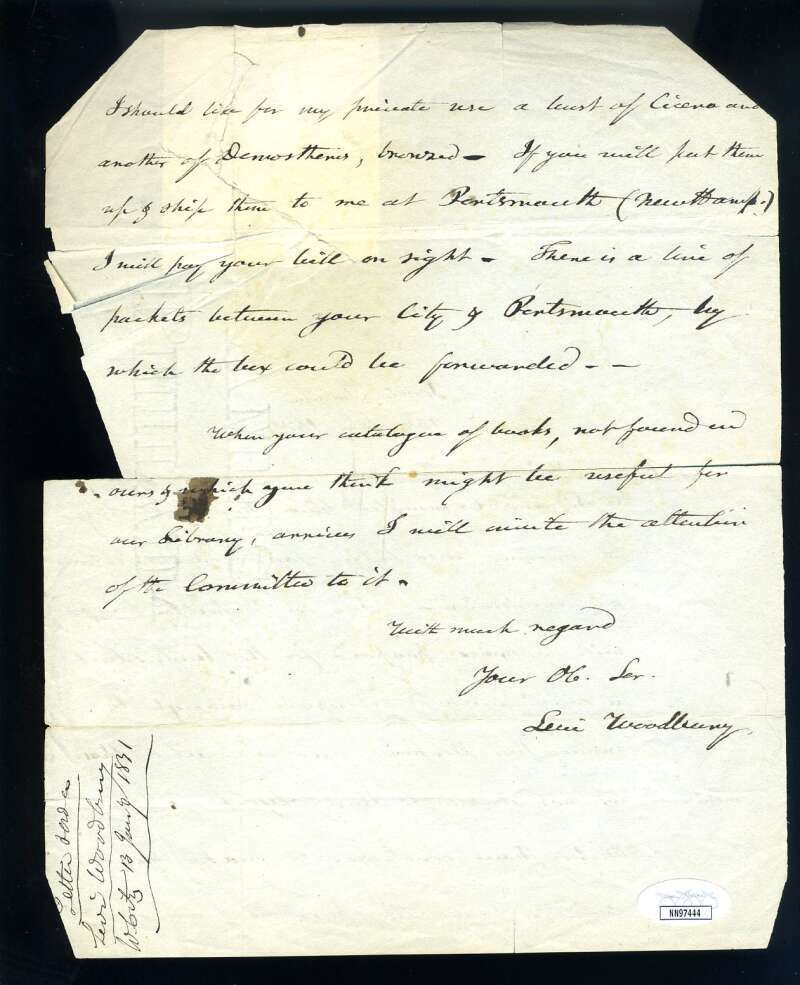 I should like for my private use a bust of Cicero and
another of Demosthenes, bronzed - If you will put them
up & ship them to me at Portsmouth (New Hamp.)
I will pay your bill on sight - There is a line of
packets between your City & Portsmouth, by
which the box could be forwarded - -
When your catalogue of books, not found in
ours & which you think might be useful for
our Library, arrives I will invite the attention
of the Committee to it -
With much regard
Your Ob. Ser.
Levi Woodbury.
Letter
Levi Woodbury
13 Jany 1831
NN97444